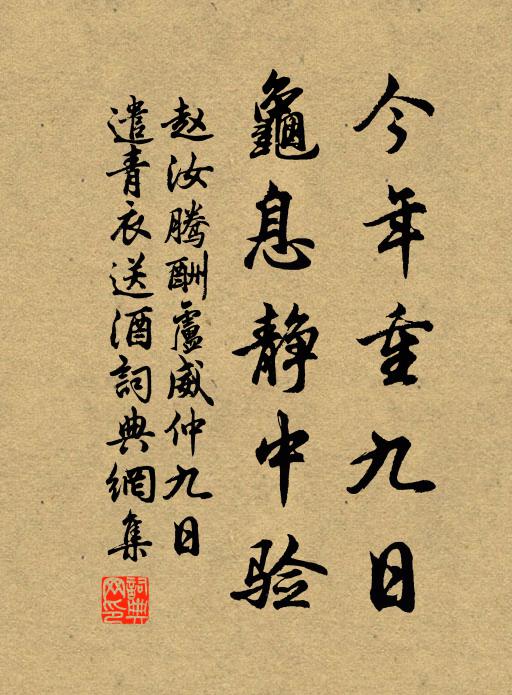 今年重九日
龜息静中验
赵汝腾酬盧威仲九日
遣青衣送酒詞典網集
詞典网印